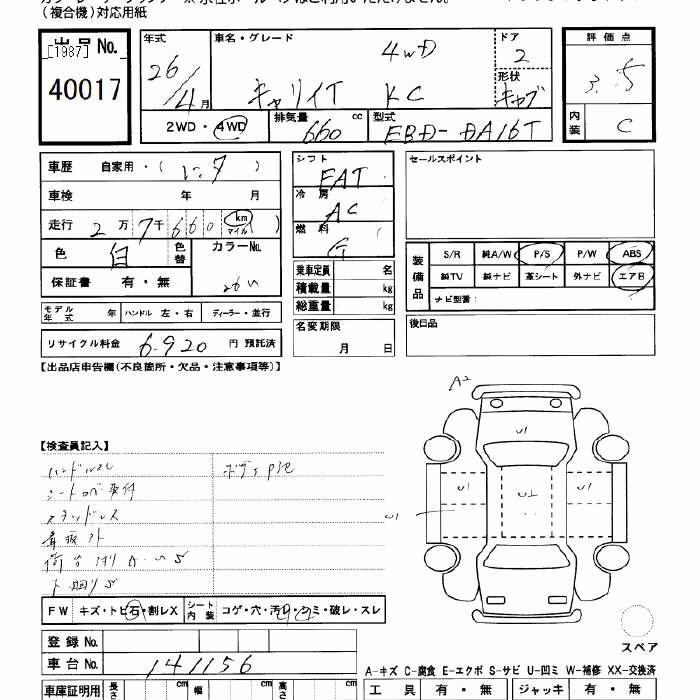 (複合機)対応用紙
出品 No.
[1987]
40017
年式 26/4月
車名・グレード 4WD キャリイT KC
ドア 2
形状 キャブ
2WD・4WD
排気量 660 cc
型式 EBD-DA16T
評価点 3.5
内装 C
車歴 自家用・(レンタ)
車検 年 月
走行 2万7千660 km マイル( )
色 白 色替 カラーNo. 26U
保証書 有・無
モデル年式 年 ハンドル 左・右 ディーラー・並行
リサイクル料金 6.920 円 預託済
シフト FAT
冷房 AC
燃料 G
乗車定員 名
積載量 kg
総重量 kg
名変期限 月 日
セールスポイント
装備品 S/R 純A/W P/S P/W ABS
純TV 純ナビ 革シート 外ナビ エアB
ナビ型番:
後日品
【出品店申告欄(不良箇所・欠品・注意事項等)】
【検査員記入】
A2
U1
U1
U1
U1
FW キズ・トビ石・割レX シート内装 コゲ・穴・汚レ・シミ・破レ・スレ
登録No.
車台No. 141156
車庫証明用 長さ cm 幅 cm 高さ cm
スペア
A-キズ C-腐食 E-エクボ S-サビ U-凹ミ W-補修 XX-交換済
工具 有・無 ジャッキ 有・無